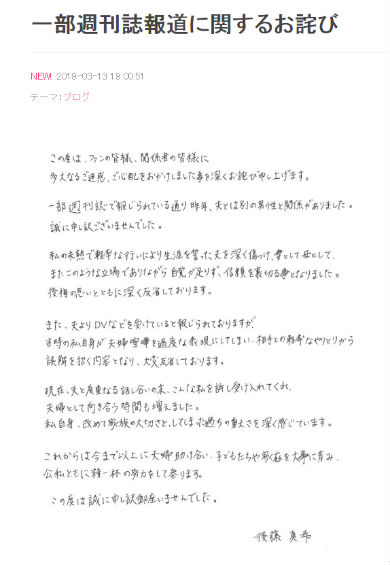 一部週刊誌報道に関するお詫び
NEW! 2019-03-13 19:00:51
テーマ：ブログ
この度は、ファンの皆様、関係者の皆様に
多大なるご迷惑、ご心配をおかけしました事を深くお詫び申し上げます。
一部週刊誌で報じられている通り昨年、夫とは別の男性と関係がありました。
誠に申し訳ございませんでした。
私の未熟で軽率な行いにより生涯を誓った夫を深く傷つけ、妻として母として、
またこのような立場でありながら自覚が足りず、信頼を裏切る事となりました。
後悔の思いとともに深く反省しております。
また、夫よりDVなどを受けていると報じられておりますが、
当時の私自身が夫婦喧嘩を過度な表現にしてしまい、相手との軽率なやりとりから
誤解を招く内容となり、大変反省しております。
現在、夫と度重なる話し合いの末、こんな私を許し受け入れてくれ、
夫婦として向き合う時間も増えました。
私自身、改めて家族の大切さと、してしまった過ちの重大さを深く感じています。
これからは今まで以上に夫婦助け合い、子どもたちや家庭を大事に育み、
公私ともに精一杯の努力をして参ります。
この度は誠に申し訳御座いませんでした。
後藤 真希